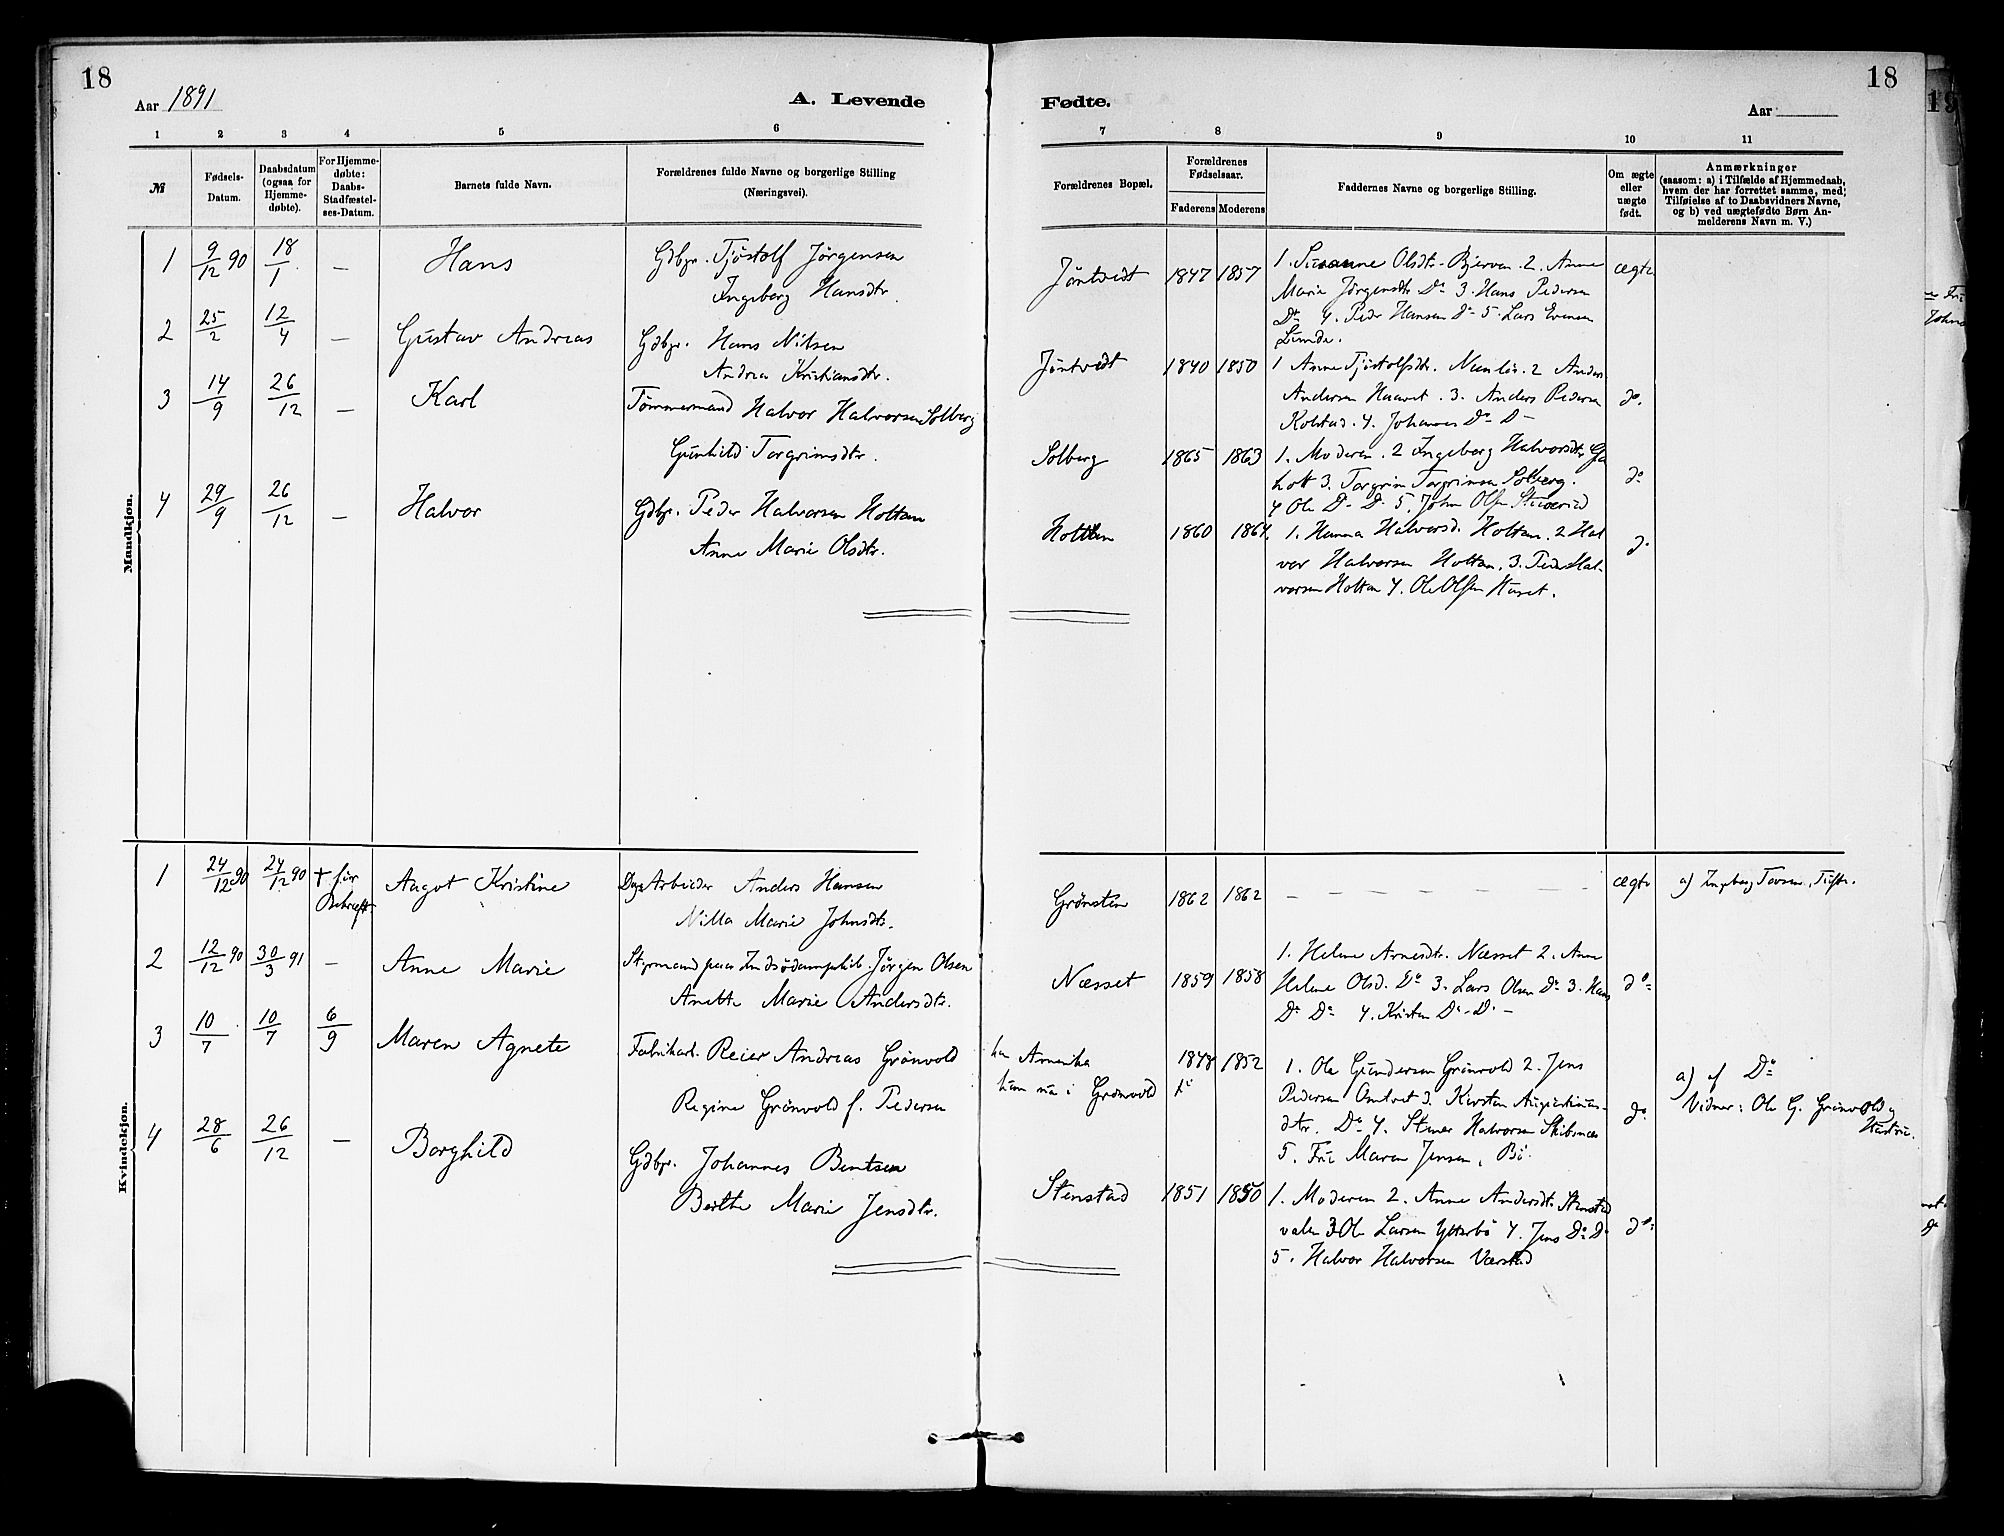 18
Aar 1891
A. Levende
1 2 3 4 5 6
№
Fødsels-Datum.
Daabsdatum (ogsaa for Hjemme-døbte).
For Hjemme-døbte: Daabs-Stadfæstel-ses-Datum.
Barnets fulde Navn.
Forældrenes fulde Navne og borgerlige Stilling (Næringsvei).
Mandkjøn.
1 9/12 90 18/1 — Hans Gdbgr. Tjøstolf Jørgensen
Ingeborg Hansdtr.
2 25/2 12/4 — Gustav Andreas Gdbgr. Hans Nilsen
Andrea Kristiansdtr.
3 14/9 26/12 — Karl Tømmermand Halvor Halvorsen Solberg
Gunhild Torgrimsdtr.
4 29/9 26/12 — Halvor Gdbgr. Peder Halvorsen Holtan
Anne Marie Olsdtr.
Kvindekjøn.
1 24/12 90 24/12 90 + før Bekræft. Aagot Kristine Dagarbeider Anders Hansen
Nilla Marie Johnsdtr.
2 12/12 90 30/3 91 — Anne Marie Styrmand paa Jørgen Olsen
Anette Marie Andersdtr.
3 10/7 10/7 6/9 Maren Agnete Fabrikarb. Reier Andreas Grønvold
Regine Grønvold f. Pedersen
4 28/6 26/12 — Borghild Gdbgr. Johannes Bentsen
Berthe Marie Jensdtr.
18
Fødte.
Aar
7 8 9 10 11
Forældrenes Bopæl.
Forældrenes Fødselsaar.
Faderens Moderens
Faddernes Navne og borgerlige Stilling.
Om ægte eller uægte født.
Anmærkninger
(saasom: a) i Tilfælde af Hjemmedaab,
hvem der har forrettet samme, med
Tilføielse af to Daabsvidners Navne,
og b) ved uægtefødte Børn An-
melderens Navn m. V.)
Jøntvedt 1847 1857 1. Susanne Olsdtr. Bjerven. 2. Anne ægte
Marie Jørgensdtr. Do 3. Hans Pedersen
Do 4. Peder Hansen Do 5. Lars Evensen
Lunde.
Jøntvedt 1840 1850 1 Anne Tjøstolfsdtr. 2 Anders
Andersen Haavet. 3. Anders Pedersen do.
Kolstad. 4. Johannes Do D
Solberg 1865 1863 1. Moderen. 2 Ingeborg Halvorsdtr.
holt 3. Torgrim Torgrimsen Solberg. do
4 Ole D. D. 5. John Olsen
Holtan 1860 1864. 1. Hanna Halvorsd. Holtan. 2 Hal
vor Halvorsen Holtan. 3. Peder Hal- do
vorsen Holtan 4. Ole Olsen Haret.
Grønsten 1862 1862 — — — — — — ægte a) Ingeborg Tovsen,
Næsset 1859 1858 1. Helene Arnesdtr. Næsset 2. Anne
Helene Olsd. Do 3. Lars Olsen Do 3. Hans do
Do Do 4. Kristen D. D. –
han Amerika 1848 1852 1. Ole Gundersen Grønvold 2. Jens
hun nu i Grønvold Pedersen Omtvet 3. Kirsten Augustinus-
dtr. Do 4. Stener Halvorsen Skibsnæs do.
5. Fru Maren Jensen, Bö.
a) af Do
Vidner: Ole G. Grønvold og
Hustru.
Stenstad 1851 1850 1. Moderen 2. Anne Andersdtr. Stenstad
valen 3 Ole Larsen Ytterbø 4. Jens Do D do
5. Halvor Halvorsen Værstad